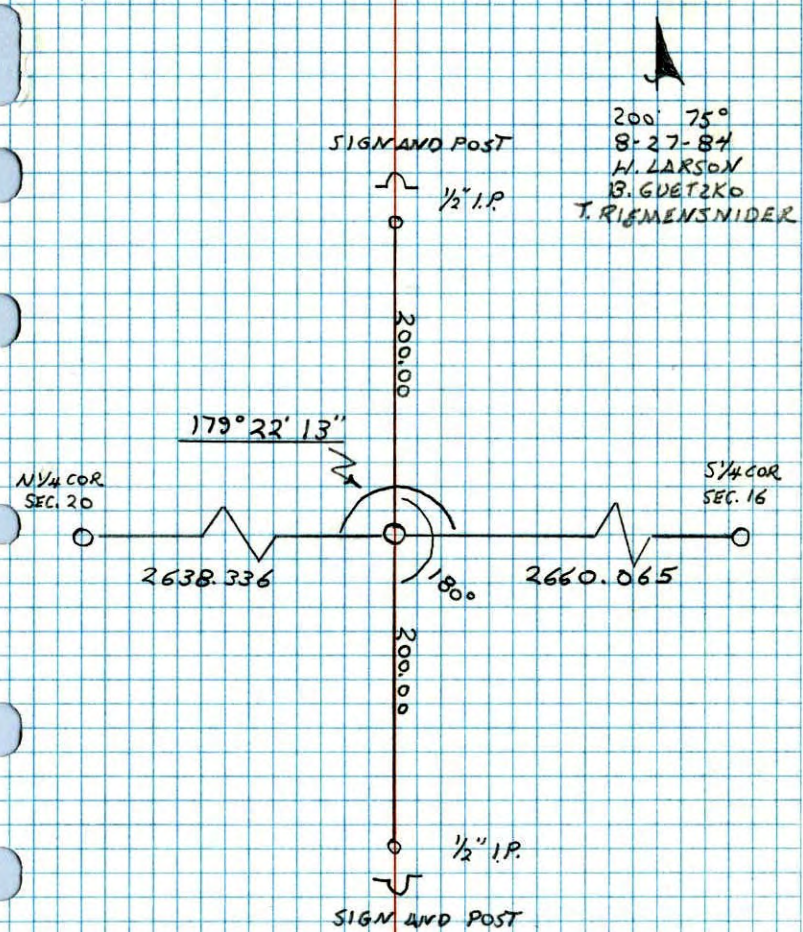 200' 75°
8-27-84
W. LARSON
B. GUETZKO
T. RIEMENSNIDER
SIGN AND POST
1/2" I.P.
200.00
179° 22' 13"
N 1/4 COR
SEC. 20
S 1/4 COR
SEC. 16
2638.336
180°
2660.065
200.00
1/2" I.P.
SIGN AND POST